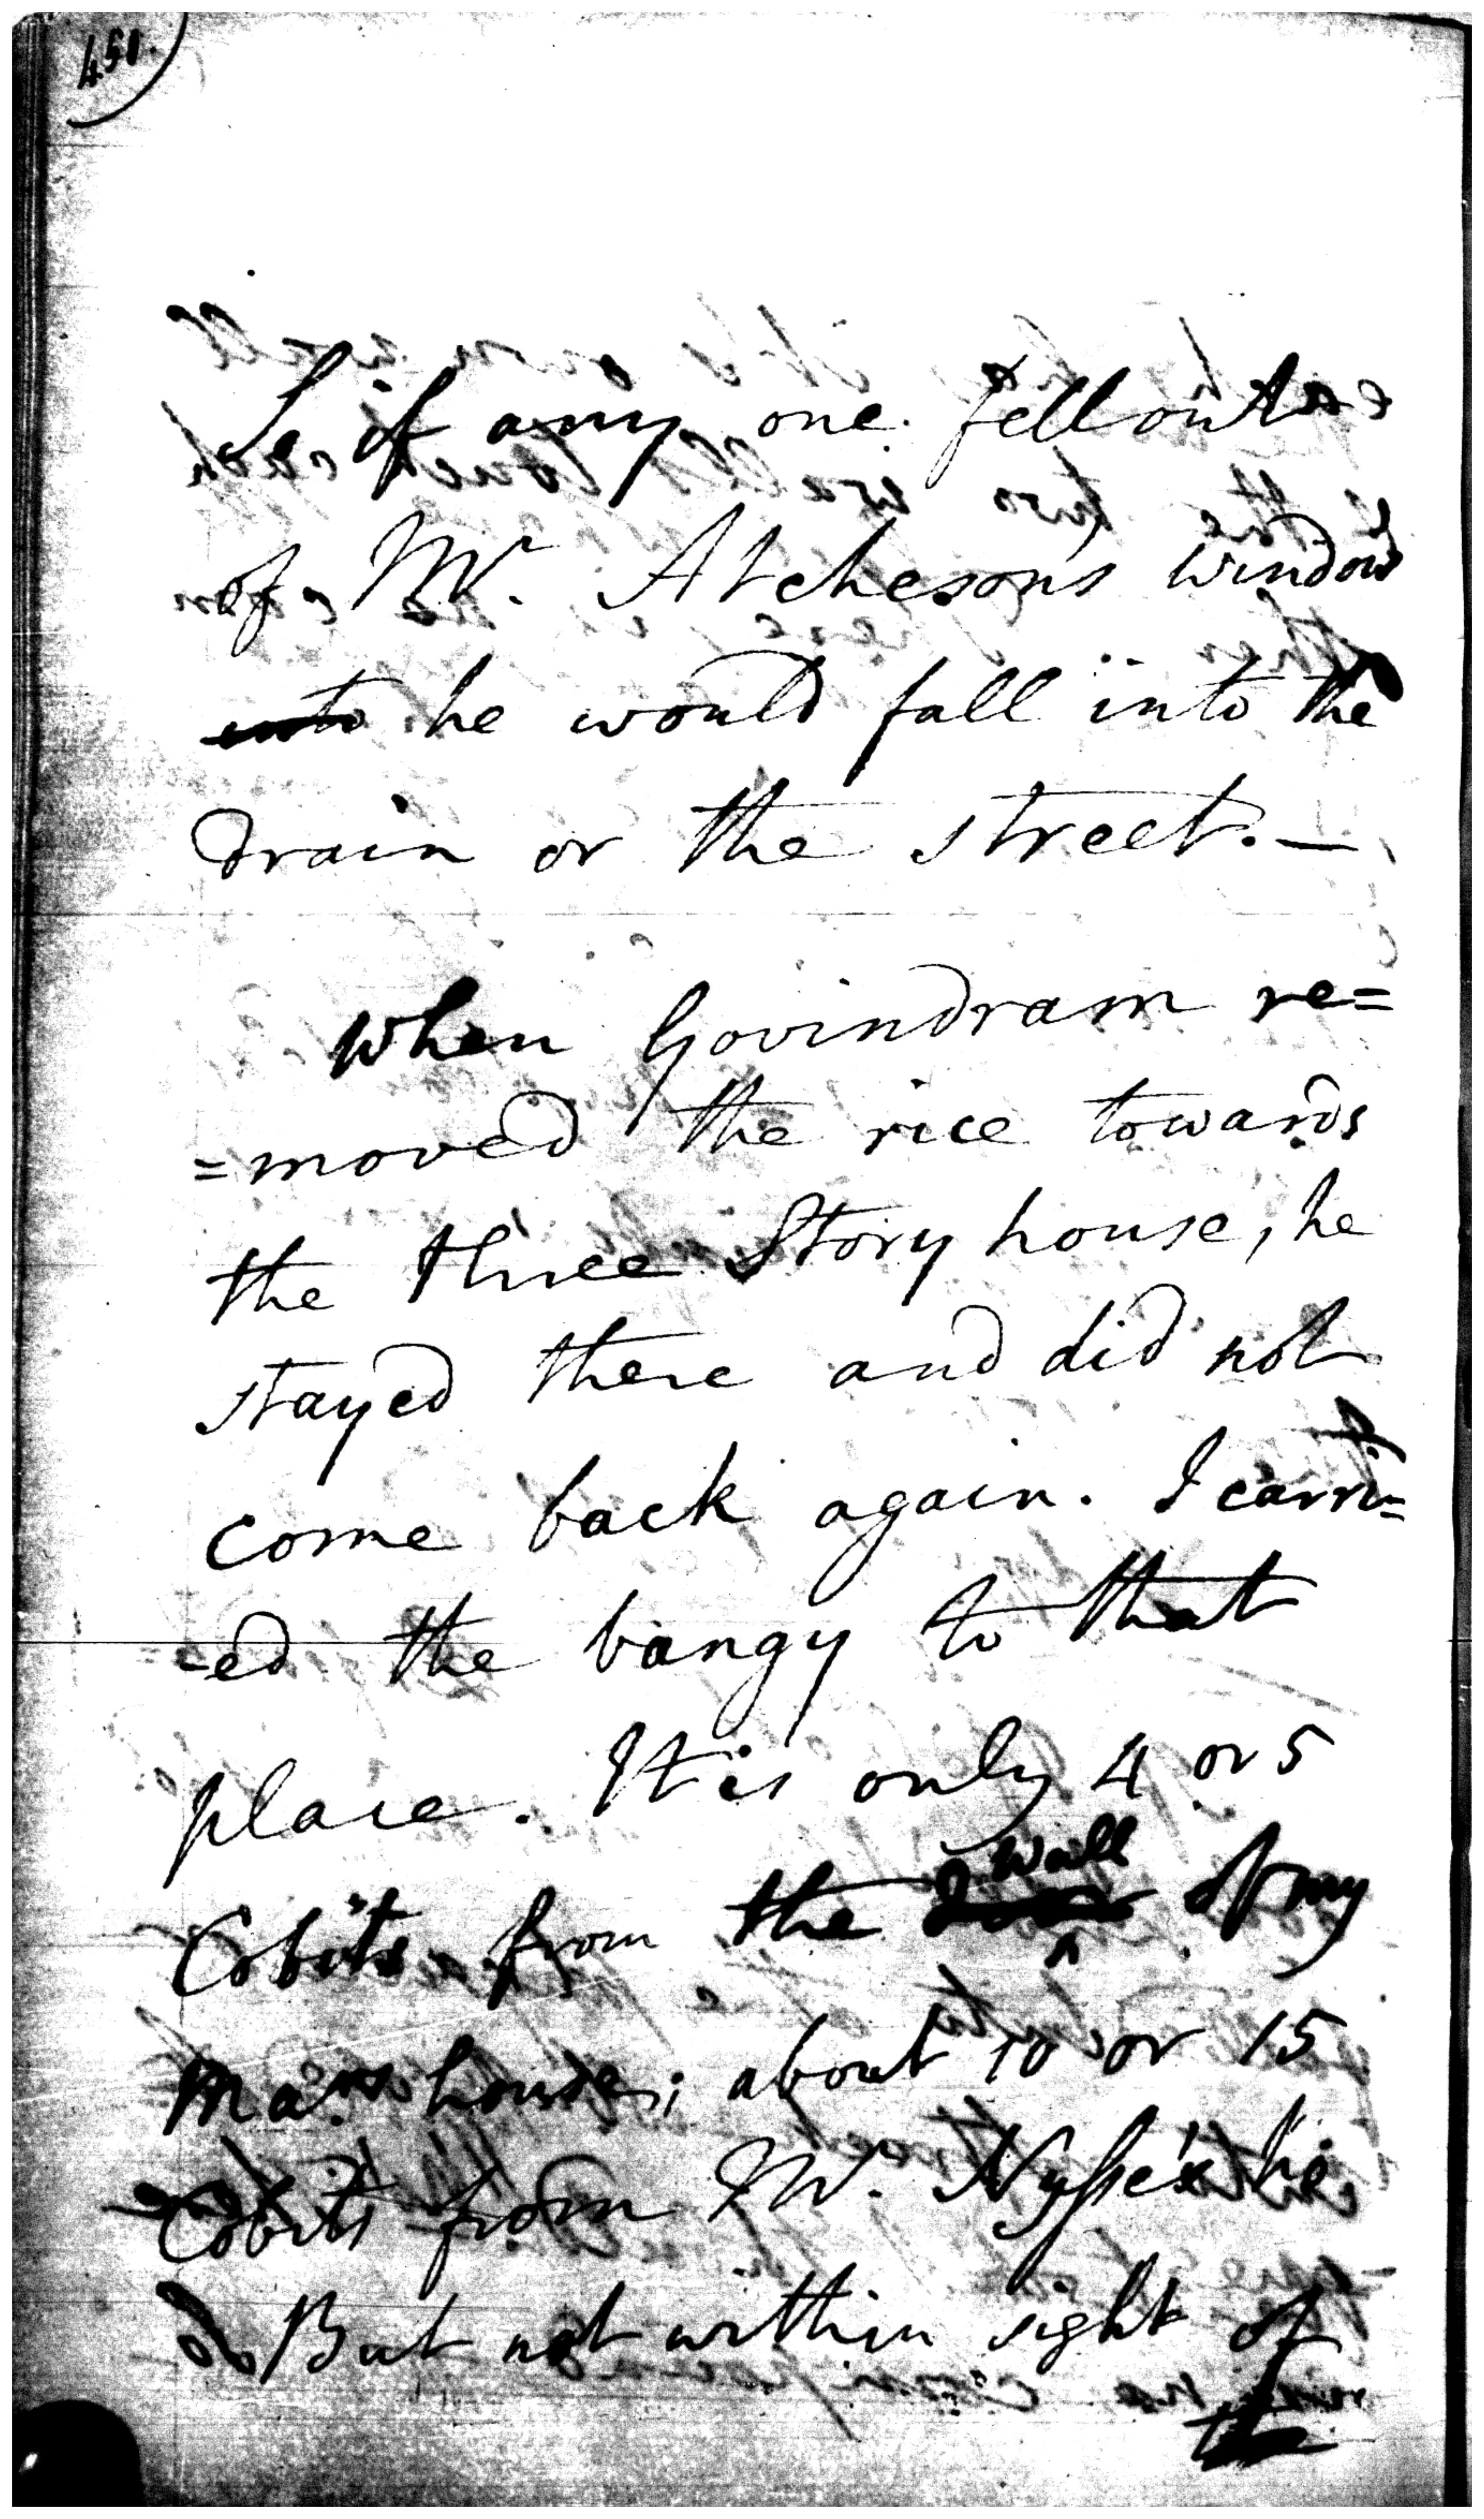 450.
So if any one fell out
of Mr. Atcheson's window
into he would fall into the
drain or the street. —
When Govindram re=
=moved the rice towards
the three Story house, he
stayed there and did not
come back again. I carri=
-ed the bangy to that
place. It is only 4 or 5
wall
Cobits from the of my
Ma's house; about 10 or 15
Cobits from Mr. he
But not within sight of